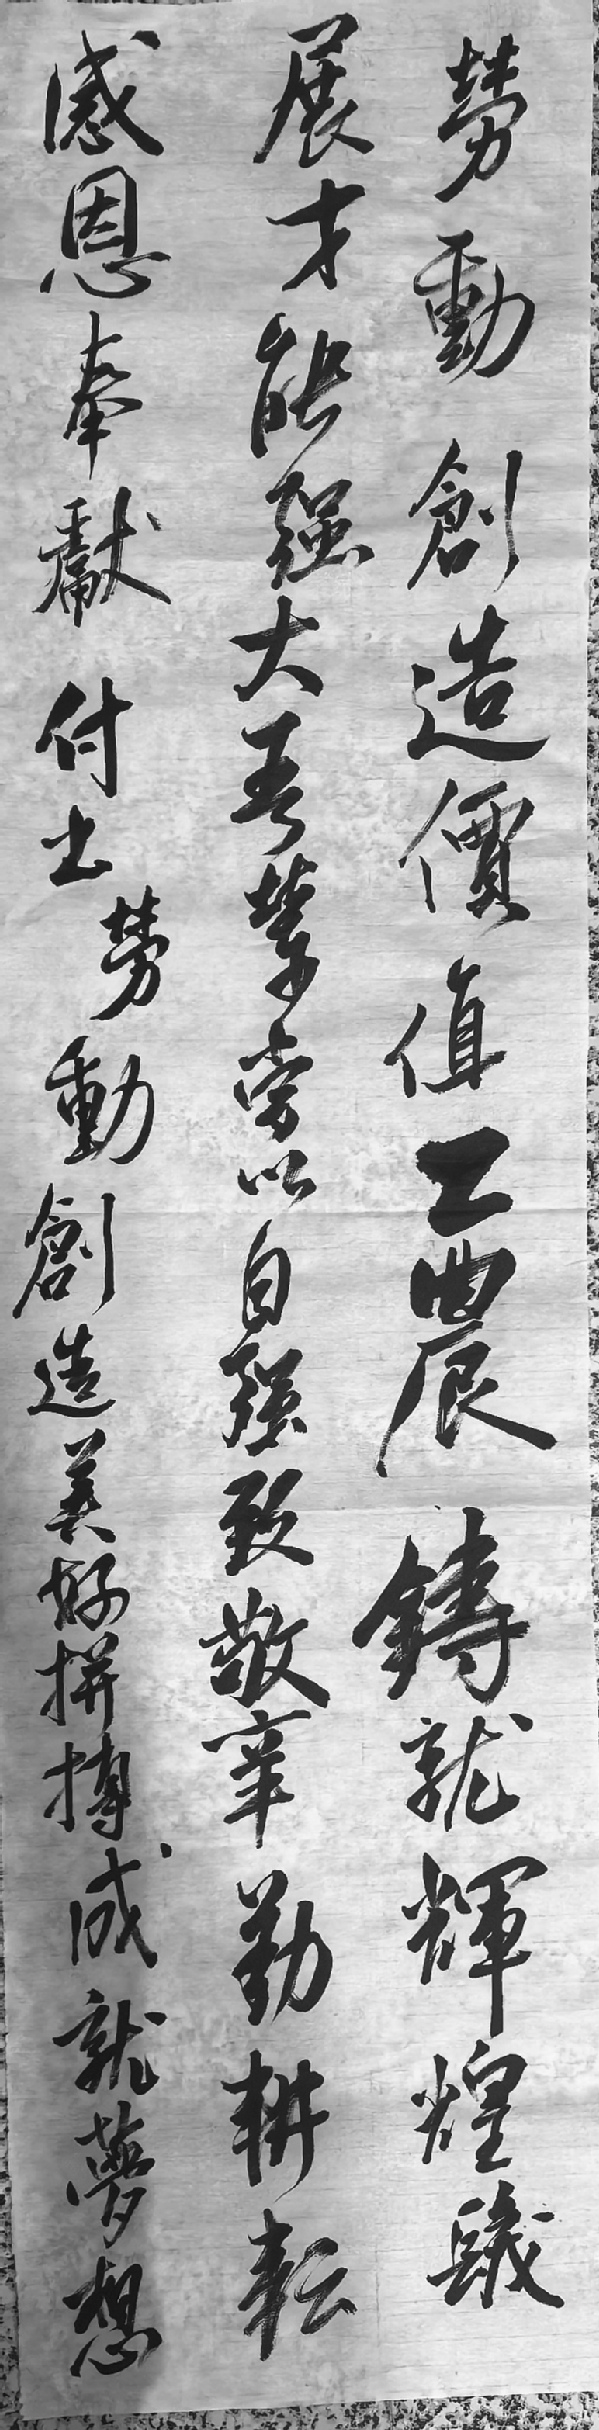 勞動創造價值工農鑄就輝煌
展才能强大吾輩當以自强致敬辛勤耕耘
感恩奉獻付出勞動創造美好拼搏成就夢想